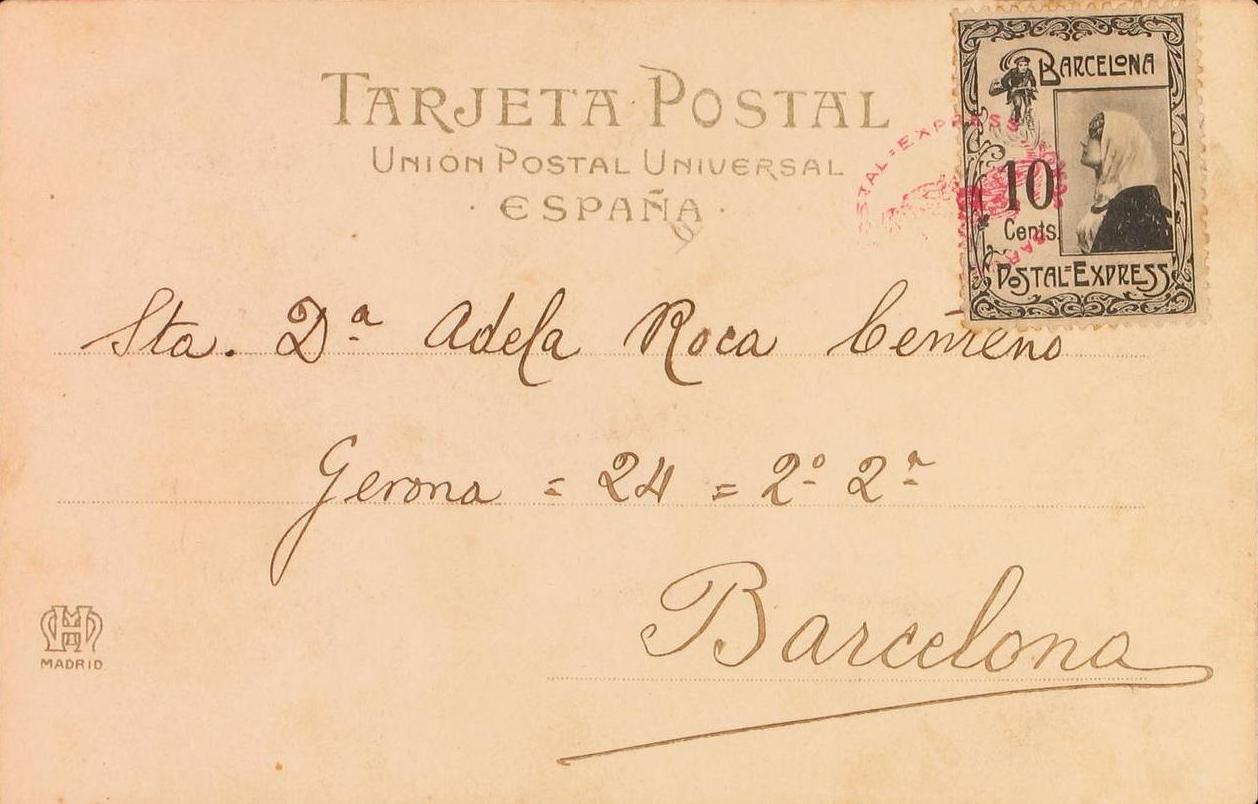 TARJETA POSTAL
UNIÓN POSTAL UNIVERSAL
· ESPAÑA ·
BARCELONA
10
Cents.
POSTAL=EXPRESS
POSTAL=EXPRESS
Sta. Dª Adela Roca
Gerona = 24 = 2º 2ª
Barcelona
MADRID